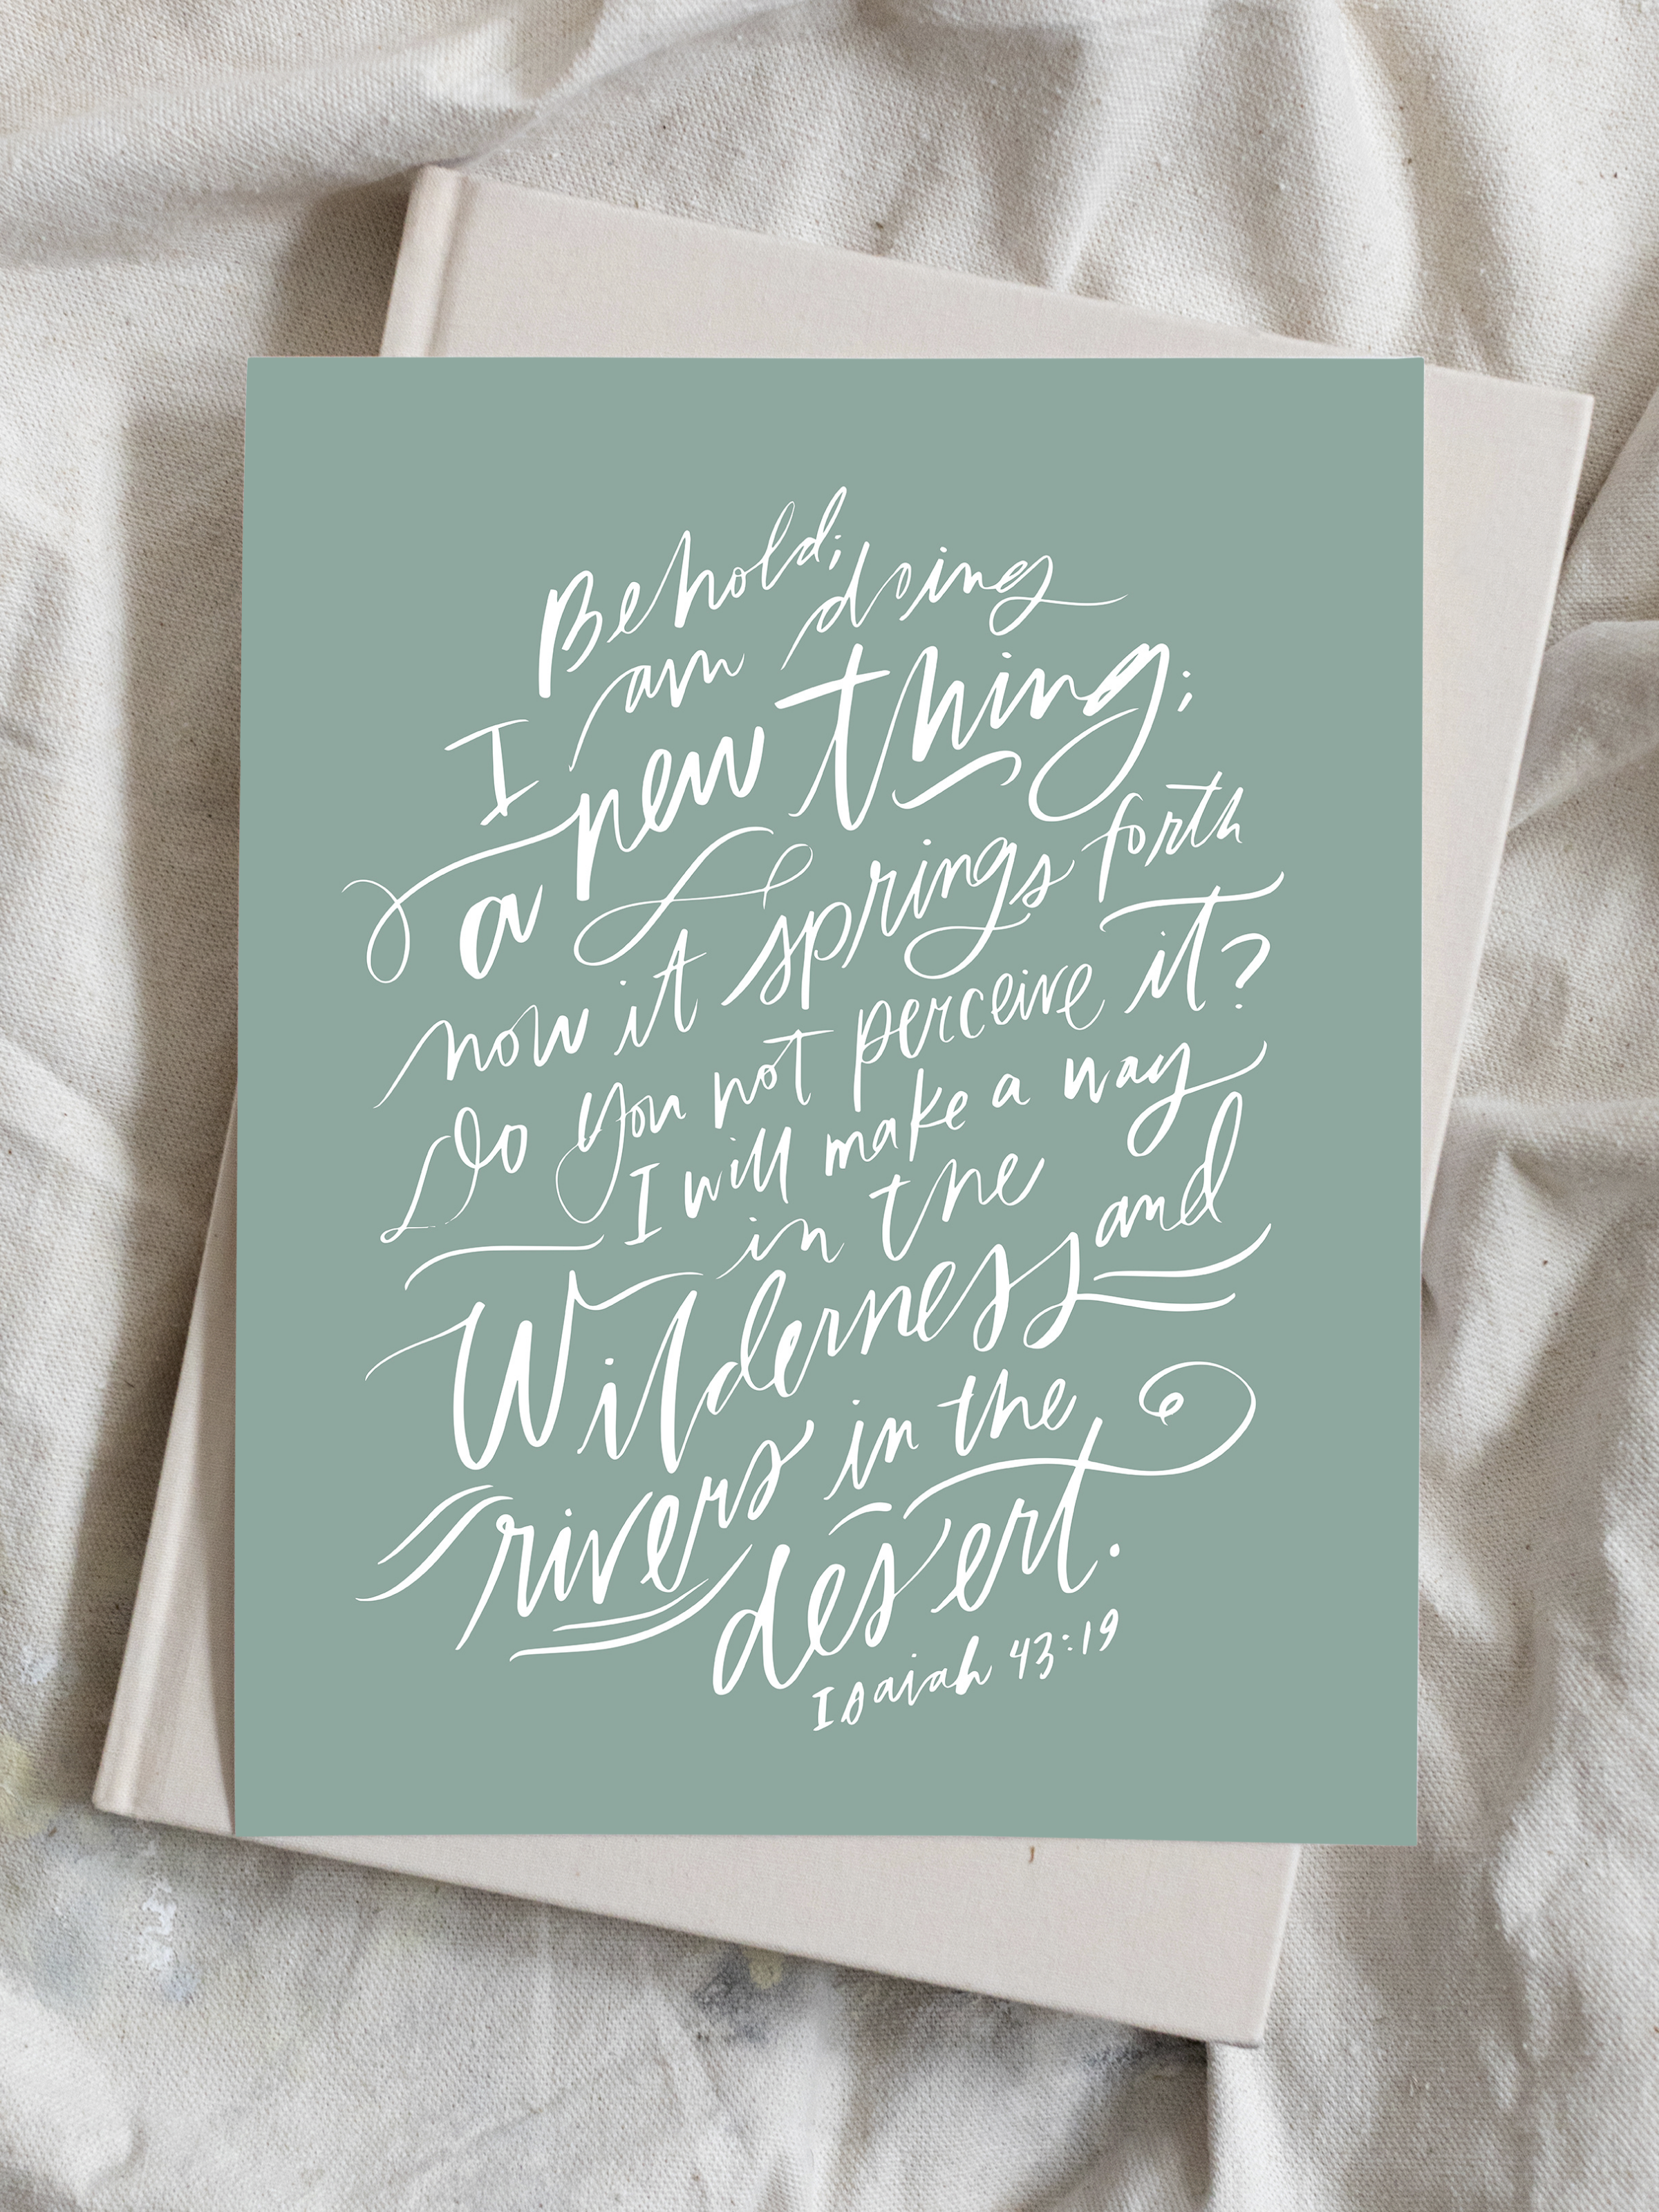 Behold;
I am doing
a new thing;
now it springs forth
Do you not perceive it?
I will make a way
in the
Wilderness and
rivers in the
desert.
Isaiah 43:19